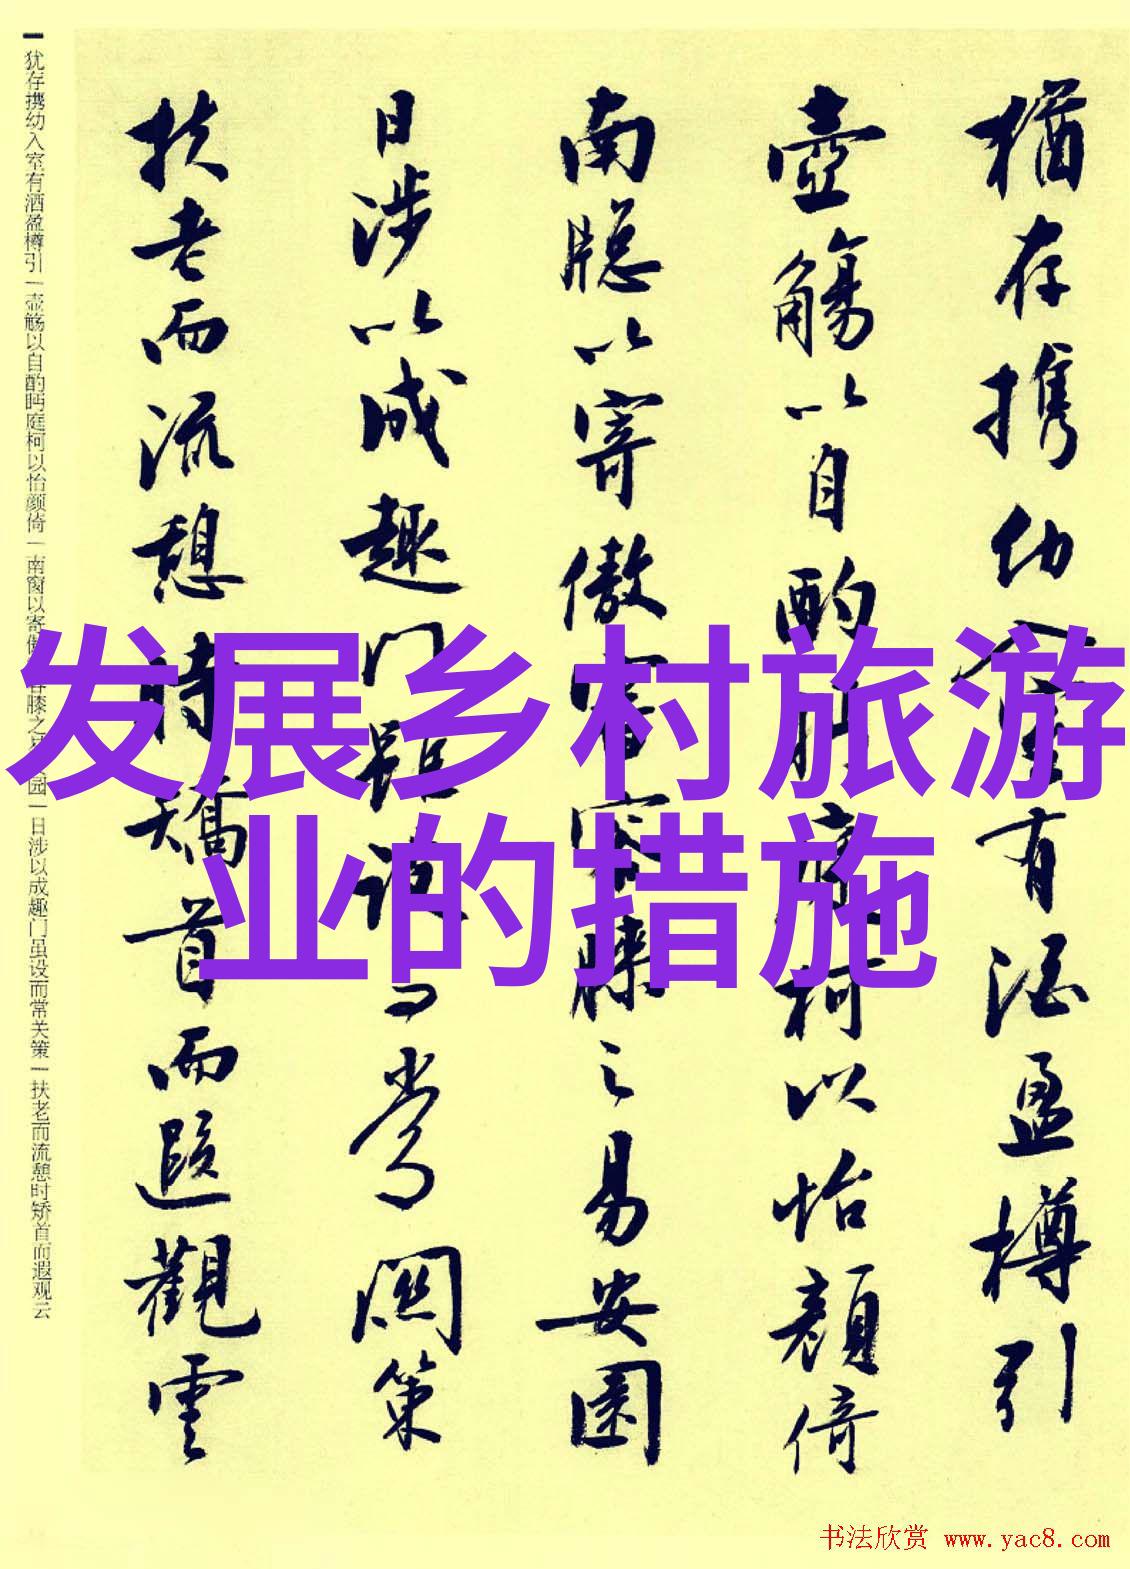 猶存携幼入室有酒盈樽引
壺觴以自酌眄庭柯以怡顔倚
南牕以寄傲審容膝之易安園
日涉以成趣門雖設而常関策
扶老而流憩時矯首而遐觀雲
发展乡村旅游
业的措施
犹存携幼入室有酒盈樽引一壶觞以自酌眄庭柯以怡颜倚一南窗以寄傲容膝之易园一日涉以成趣门虽设而常关策一扶老而流憩时矫首而遐观云
书法欣赏 www.yac8.com